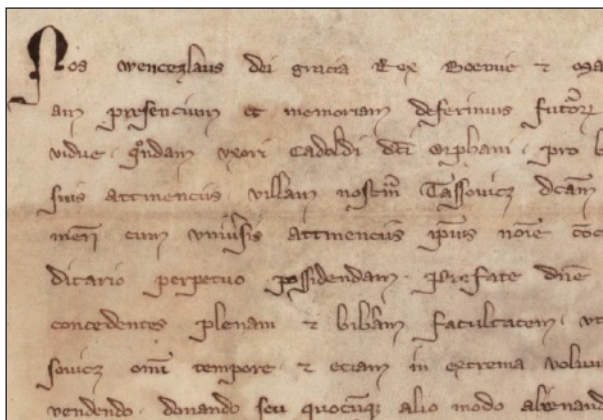 Nos Wenceslaus dei gracia Rex Boemie ⁊ Ma
am presencium et memoriam deferimus futõrꝝ
vidue qͦndam vxori Cadoldi dc̃i Orphani · pro
suis attinenciis villam nostrͣm Tassouicz dc̃am
cum vniũsis attinenciis ip̃ius noĩe
ditario perpetuo possidendam · Prefate dñe
concedentes plenam ⁊ lib̃am facultatem · vt
souicz omĩ tempore ⁊ eciam in extrema
vendendo · donando seu quocũqꝫ alio modo alienand